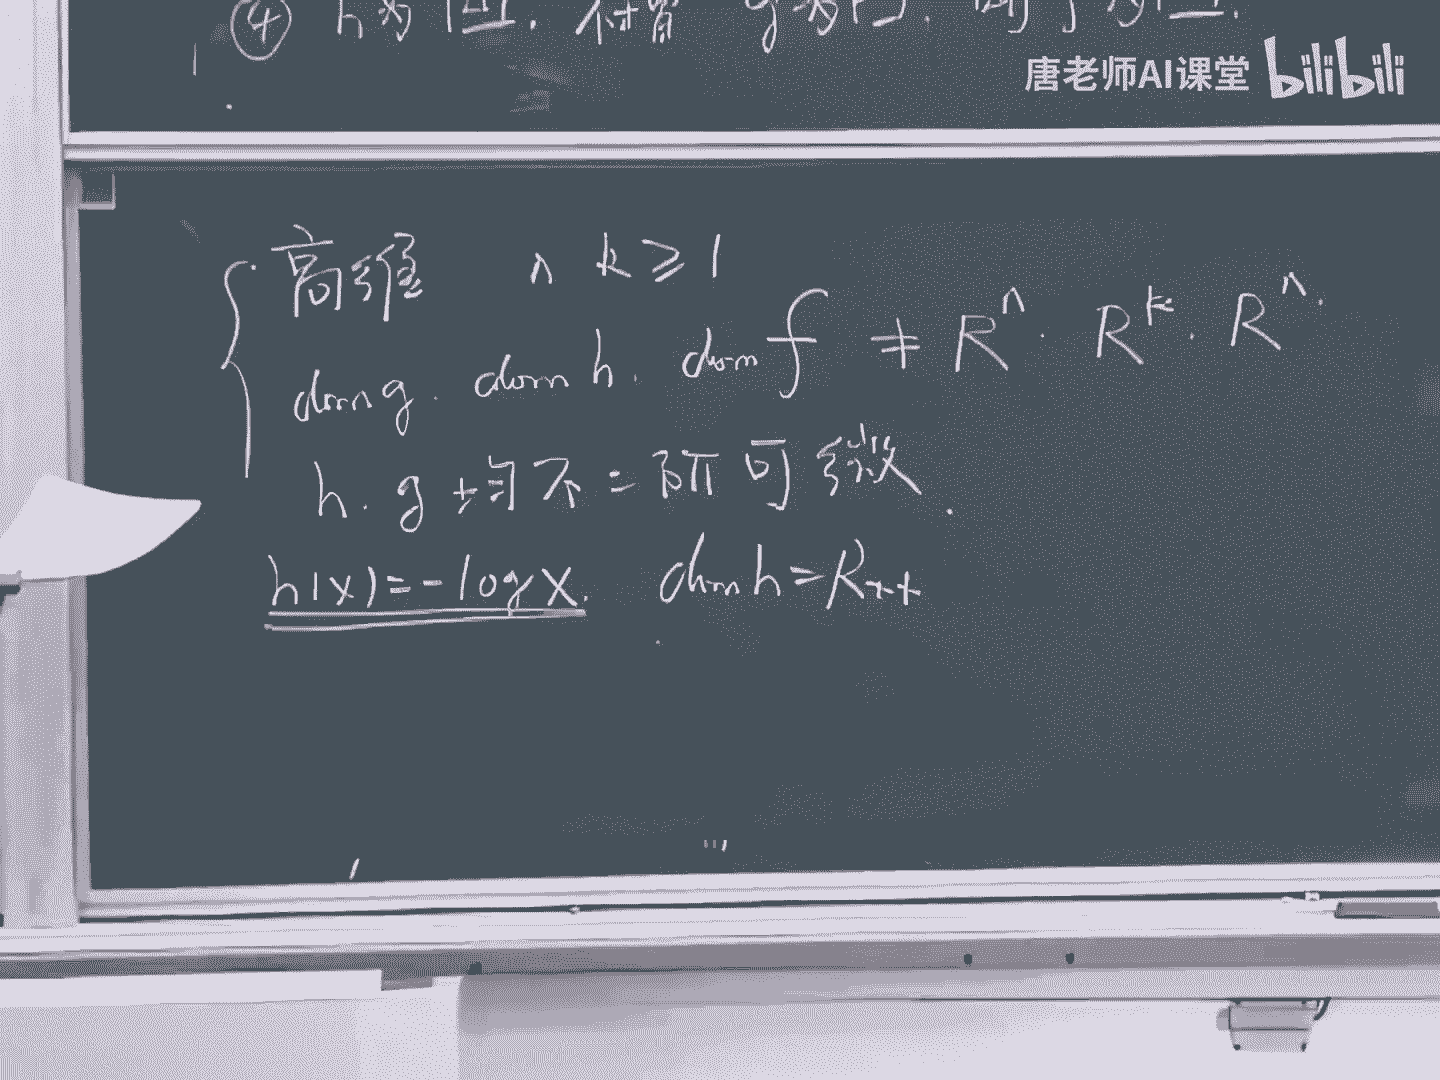 ④ h为凹.
唐老师AI课堂 bilibili
高维 n k ≥ 1
dom g. dom h. dom f ≠ Rⁿ. Rᵏ. Rⁿ.
h. g 均不二阶可微.
h(x)=-log x. dom h=R₊₊